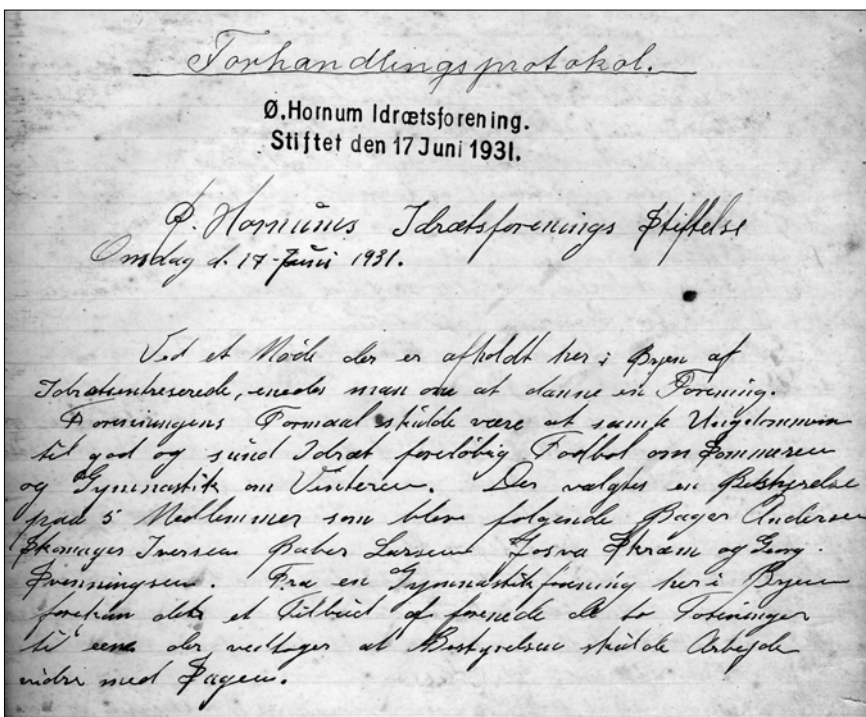 Forhandlingsprotokol.
Ø.Hornum Idrætsforening.
Stiftet den 17 Juni 1931.
Ø. Hornums Idrætsforenings Stiftelse
Onsdag d. 17-Juni 1931.
Ved et Møde der er afholdt her i Byen af
Idrætsintreserede, enedes man om at danne en Forening.
Foreningens Formaal skulde være at samle Ungdommen
til god og sund Idræt foreløbig Fodbol om Sommeren
og Gymnastik om Vinteren. Der valgtes en Bestyrelse
paa 5 Medlemmer som blev følgende Bager Andersen
Skomager Iversen Laursen Josva Skræm og Georg.
Svenningsen. Fra en Gymnastikforening her i Byen
et Tilbud af forenede de to Foreninger
til een der vedtages at Bestyrelsen skulde Arbejde
videre med Sagen.